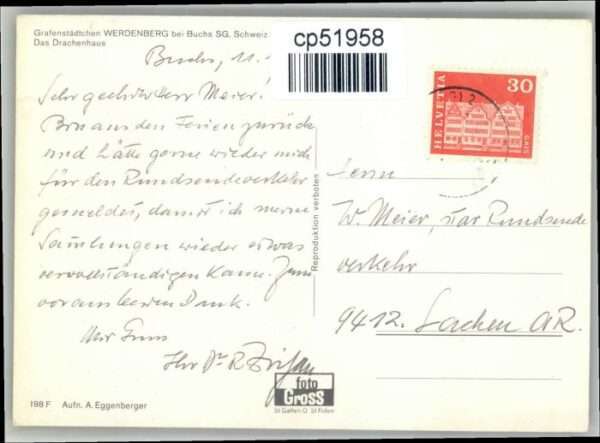 Grafenstädtchen WERDENBERG bei Buchs SG. Schweiz
Das Drachenhaus
cp51958
Buchs, 11.
Sehr geehrter Herr Meier!
Bin aus den Ferien zurück
und hätte gerne wieder mich
für den Rundsendeverkehr
gemeldet, damit ich meine
Sammlungen wieder etwas
vervollständigen kann. Zum
voraus besten Dank.
Ihr Dr R
HELVETIA
30
GAIS
Reproduktion verboten
Herrn
W. Meier, Rundsende
verkehr
9412. Lachen AR.
198 F Aufn. A. Eggenberger
foto
GROSS
St Gallen O St Fiden